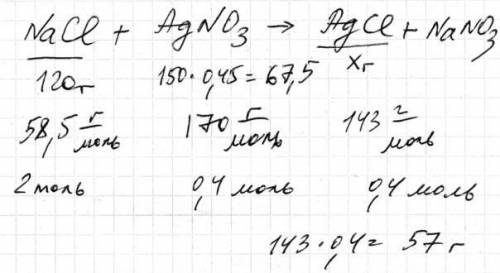 NaCl + AgNO₃ → AgCl + NaNO₃
120г 150·0,45=67,5 xг
58,5 г/моль 170 г/моль 143 г/моль
2 моль 0,4 моль 0,4 моль
143·0,4= 57г